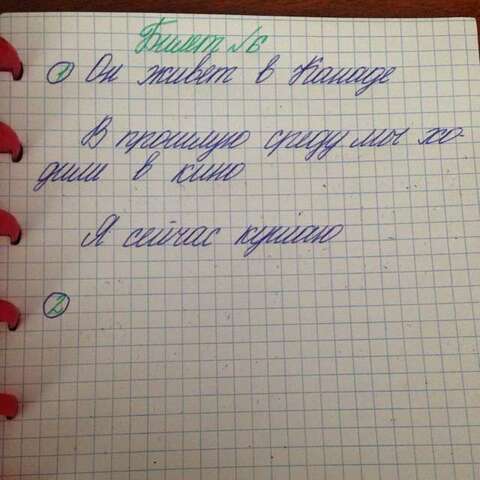 Билет №6
1 Он живет в Канаде
В прошлую среду мы хо-
дили в кино
Я сейчас кушаю
2